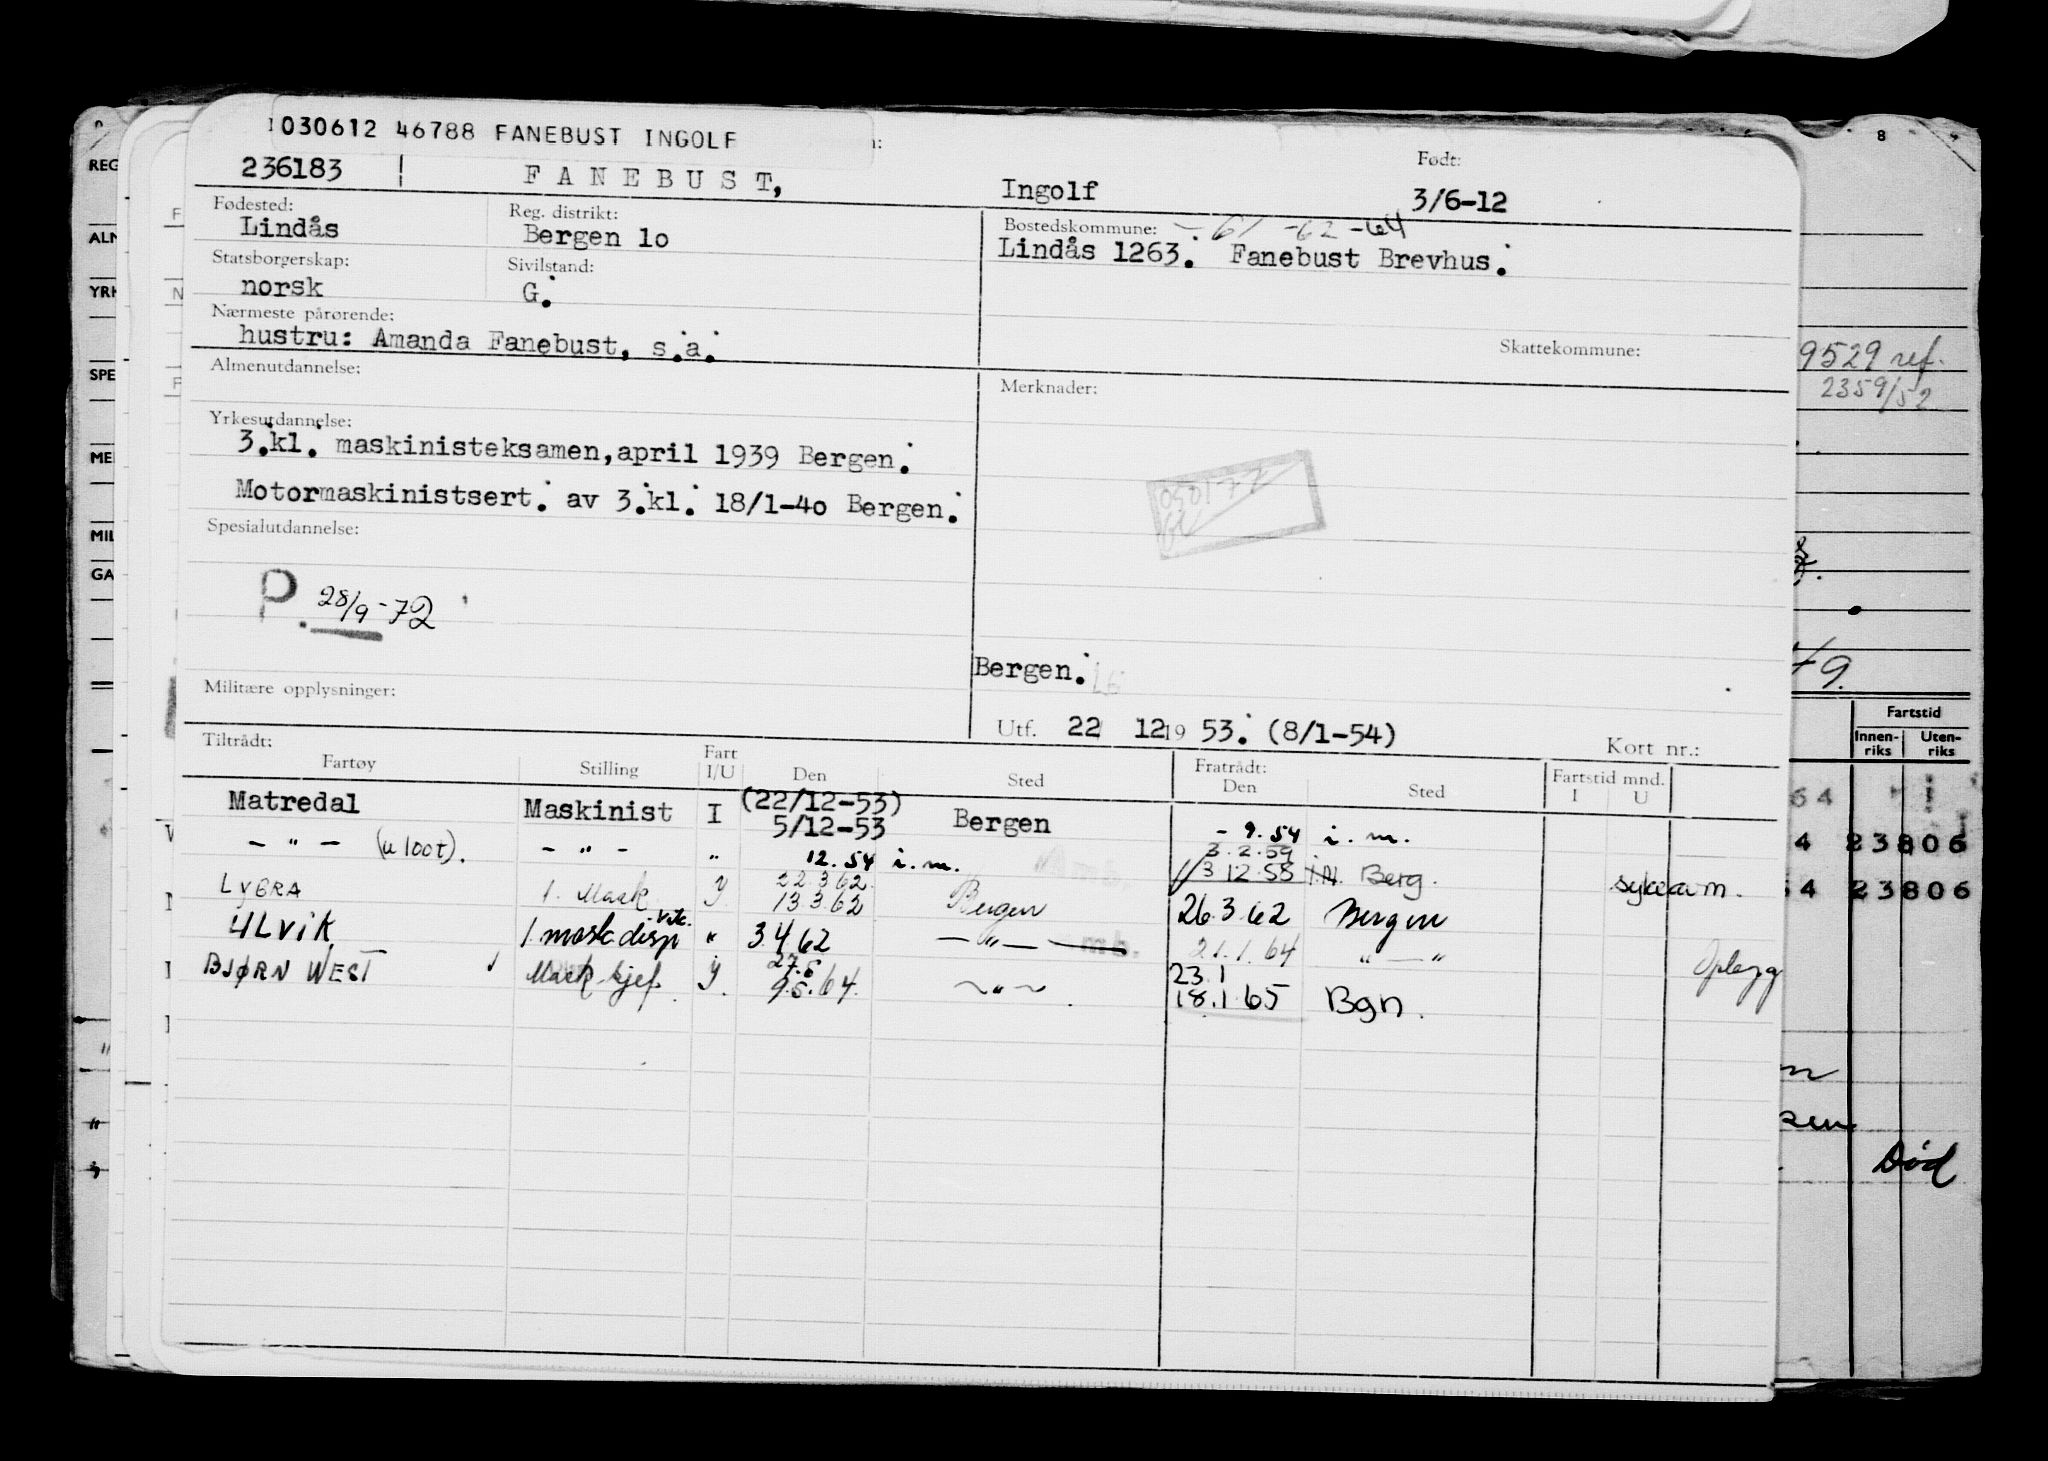 8
030612 46788 FANEBUST INGOLF
Født:
236183 FANEBUST, Ingolf 3/6-12
Fødested: Reg. distrikt: Bostedskommune: -61 -62 -64
Lindås Bergen 1o Lindås 1263. Fanebust Brevhus.
Statsborgerskap: Sivilstand:
norsk G.
Nærmeste pårørende:
hustru: Amanda Fanebust, s.a.
Skattekommune:
9529 ref.
2359/52
Almenutdannelse: Merknader:
Yrkesutdannelse:
3.kl. maskinisteksamen,april 1939 Bergen.
Motormaskinistsert. av 3.kl. 18/1-4o Bergen.
050177
Spesialutdannelse:
P. 28/9-72
Bergen.
Militære opplysninger:
Utf. 22 12 19 53. (8/1-54) Kort nr.:
Tiltrådt: Fratrådt:
Fartøy Stilling Fart I/U Den Sted Den Sted Fartstid mnd. I U
Matredal Maskinist I (22/12-53) 5/12-53 Bergen - 9.54 i.m.
— " — (u loot). — " — " 12.54 i.m. 3.2.59
3 12 58 i.m. Berg. sykeavm.
LYGRA 1. Mask 22 3 62 13 3 62 Bergen 26.3.62 Bergen
ULVIK 1. mask disp vik. " 3 4 62 — " — 21.1.64 " — " Oplegg
BJØRN WEST Mask.sjef 27.5 9.5.64. — " — 23.1 18.1.65 Bgn.
REG
ALM
YRK
SPE
MIL
GA
49.
Fartstid
Innen-riks Uten-riks
64
4 23806
54 23806
Død